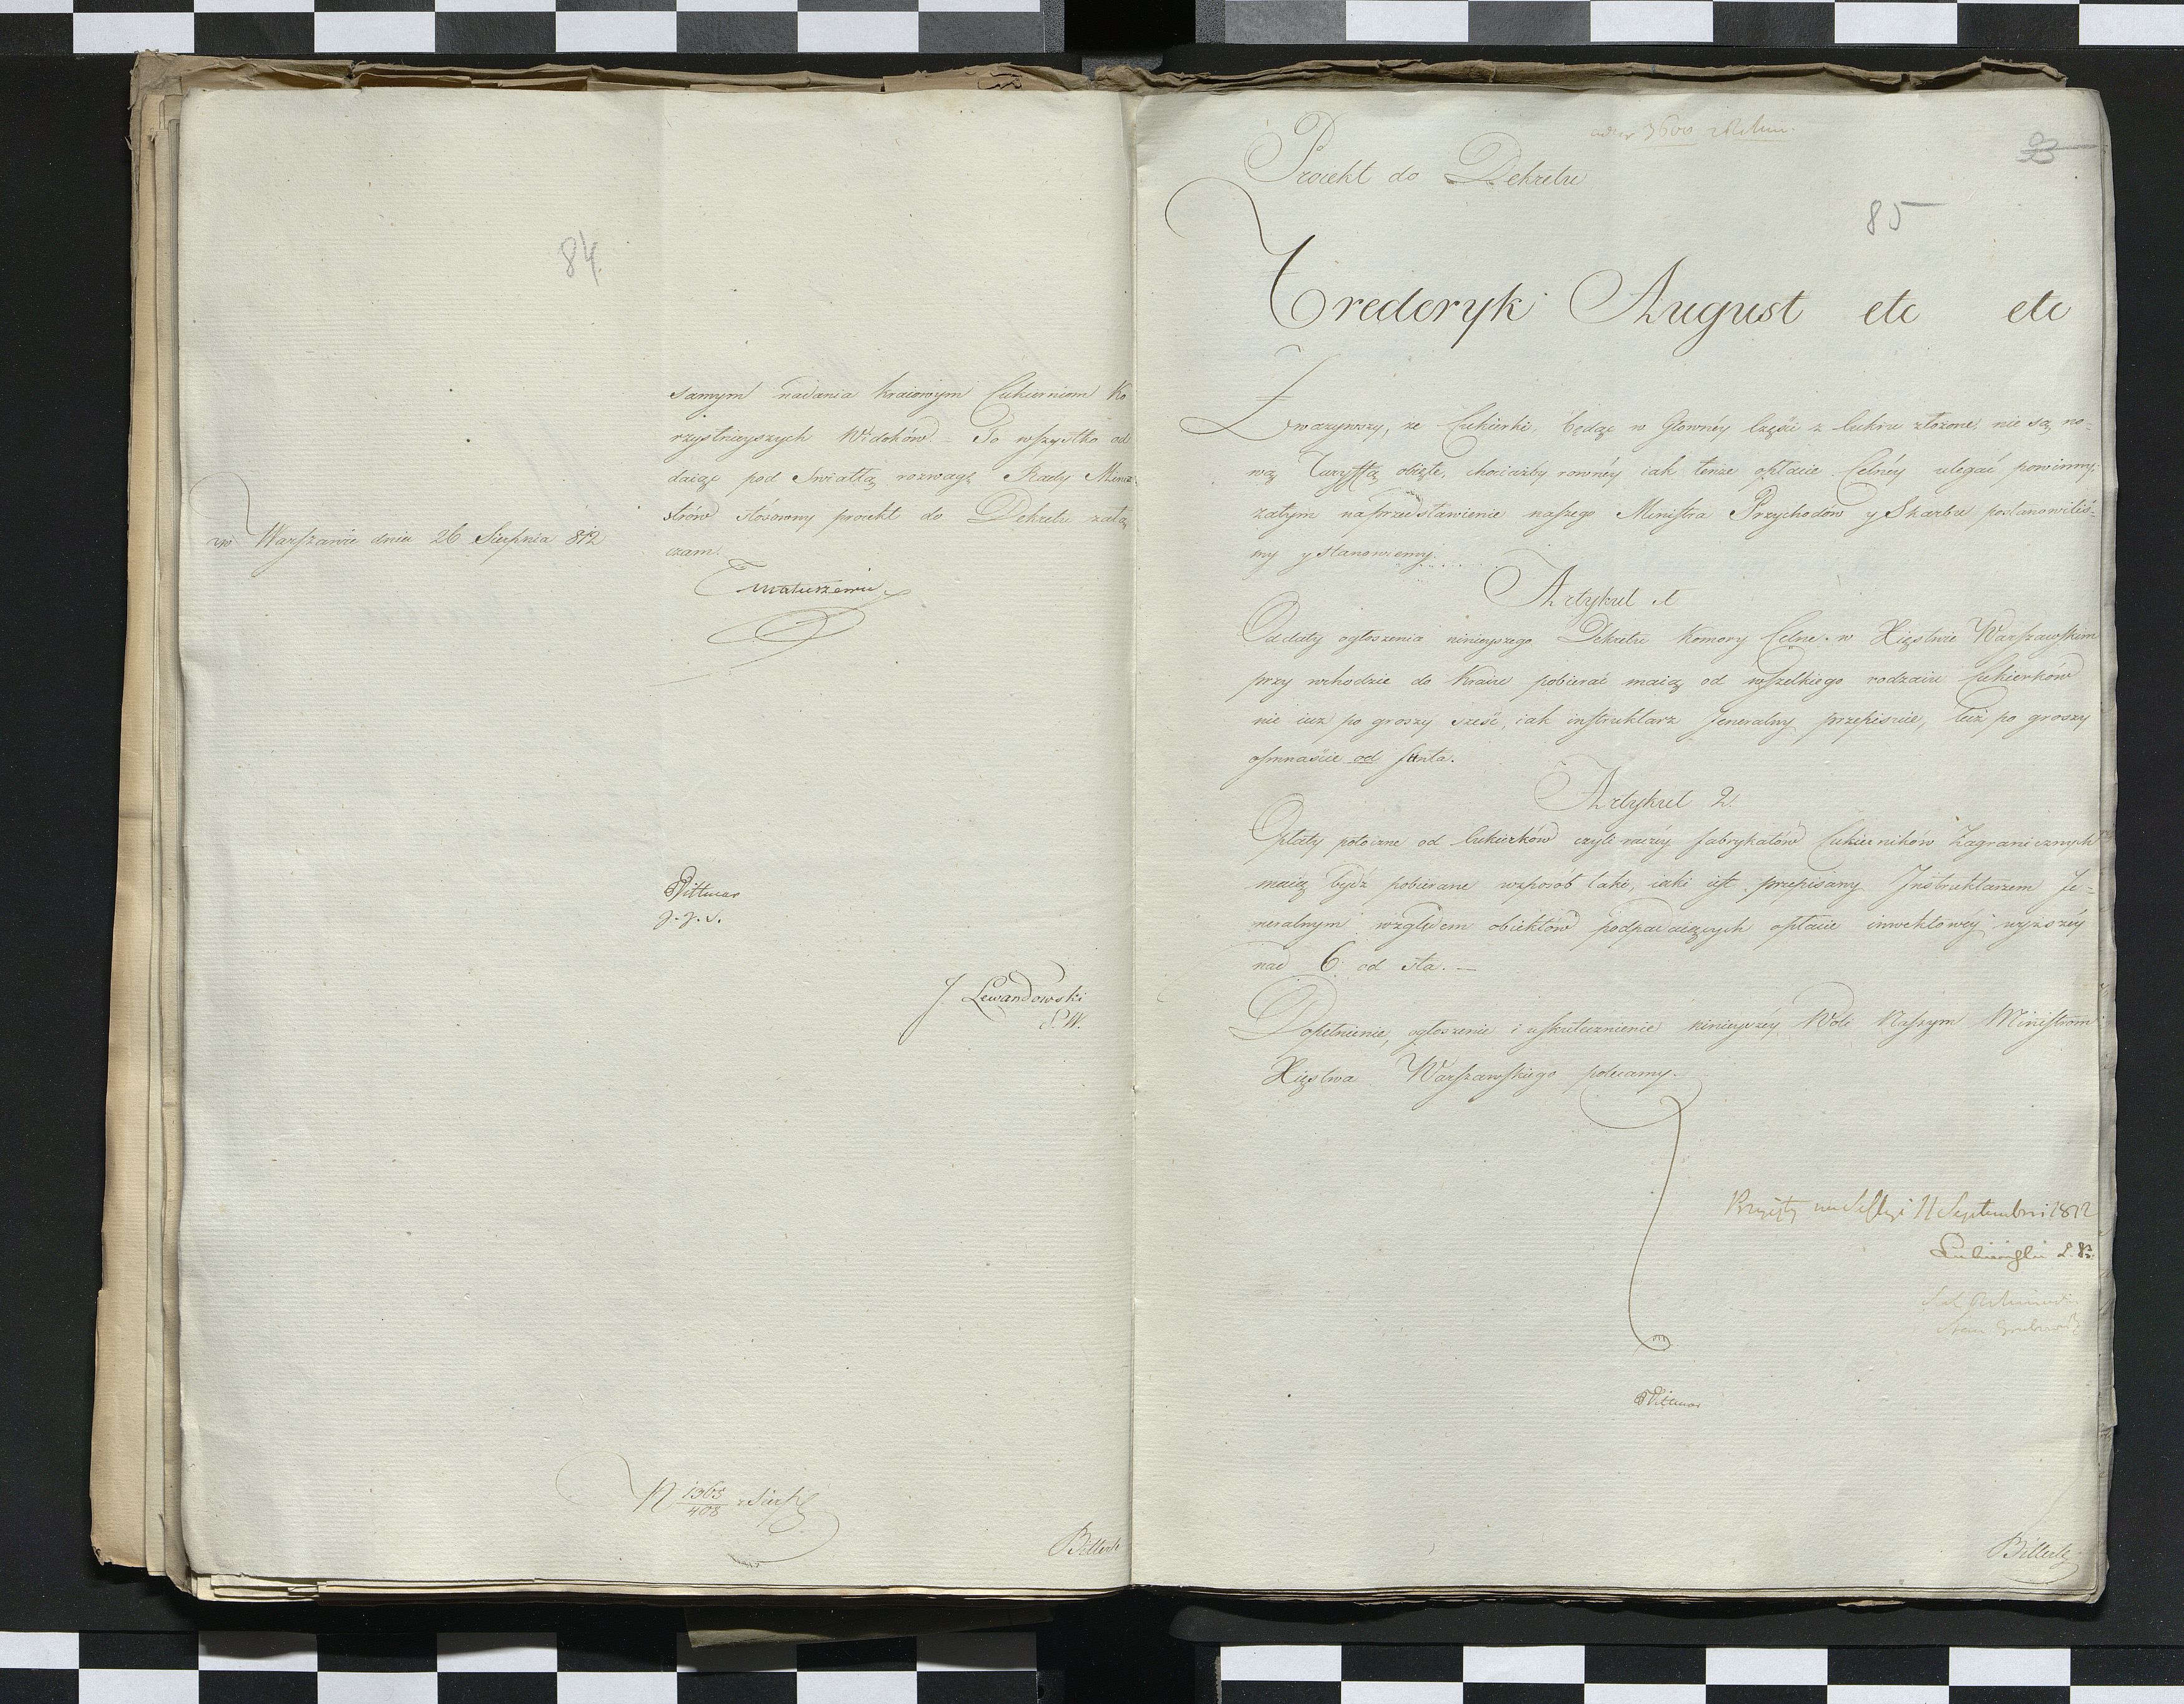 84
samym nadania kraiowym Cukierniom ko
rzystnieyszych Widoków – To wszystko od
daiąc pod Swiatłą rozwagę Rady Mini
strów stósowny proiekt do Dekretu załą
czam.
w Warszawie dnia 26 Sierpnia 812
Matuszewic
Dittmar
J. Lewandowski
N 1365/408 Sierp
Billertz
ad Nr 3600
93
Proiekt do Dekretu
85
Frederyk August etc etc
Zważywszy, że Cukierki, będąc w Głowney Części z Cukru złożone, nie są no-
wą Taryffą obięte, chociażby rowney iak tenże opłacie Celney ulegać powinny;
zatym na przedstawienie naszego Ministra Przychodów y Skarbu postanowiliś-
my y stanowiemy.
Artykuł 1
Od daty ogłoszenia ninieyszego Dekretu Komory Celne w Xięstwie Warszawskim
przy wchodzie do Kraiu pobierać maią od wszelkiego rodzaiu Cukierków
nie iuż po groszy sześć, iak instruktarz Jeneralny przepisuie, lecz po groszy
osmnaście od funta.
Artykuł 2.
Opłaty potoczne od Cukierków czyli raczey fabrykatów Cukierników Zagranicznych
maią bydź pobierane wsposób taki, iaki iest przepisany Instruktarzem Je-
neralnym względem obiektów podpadaiących opłacie inwektowey wyższey
nad 6 od sta. –
Dopełnienie, ogłoszenie i uskutecznienie ninieyszey Woli Naszym Ministrom
Xięstwa Warszawskiego polecamy.
Przyięty na Sessyi 11 Septembris 1812
Dittmar
Billertz